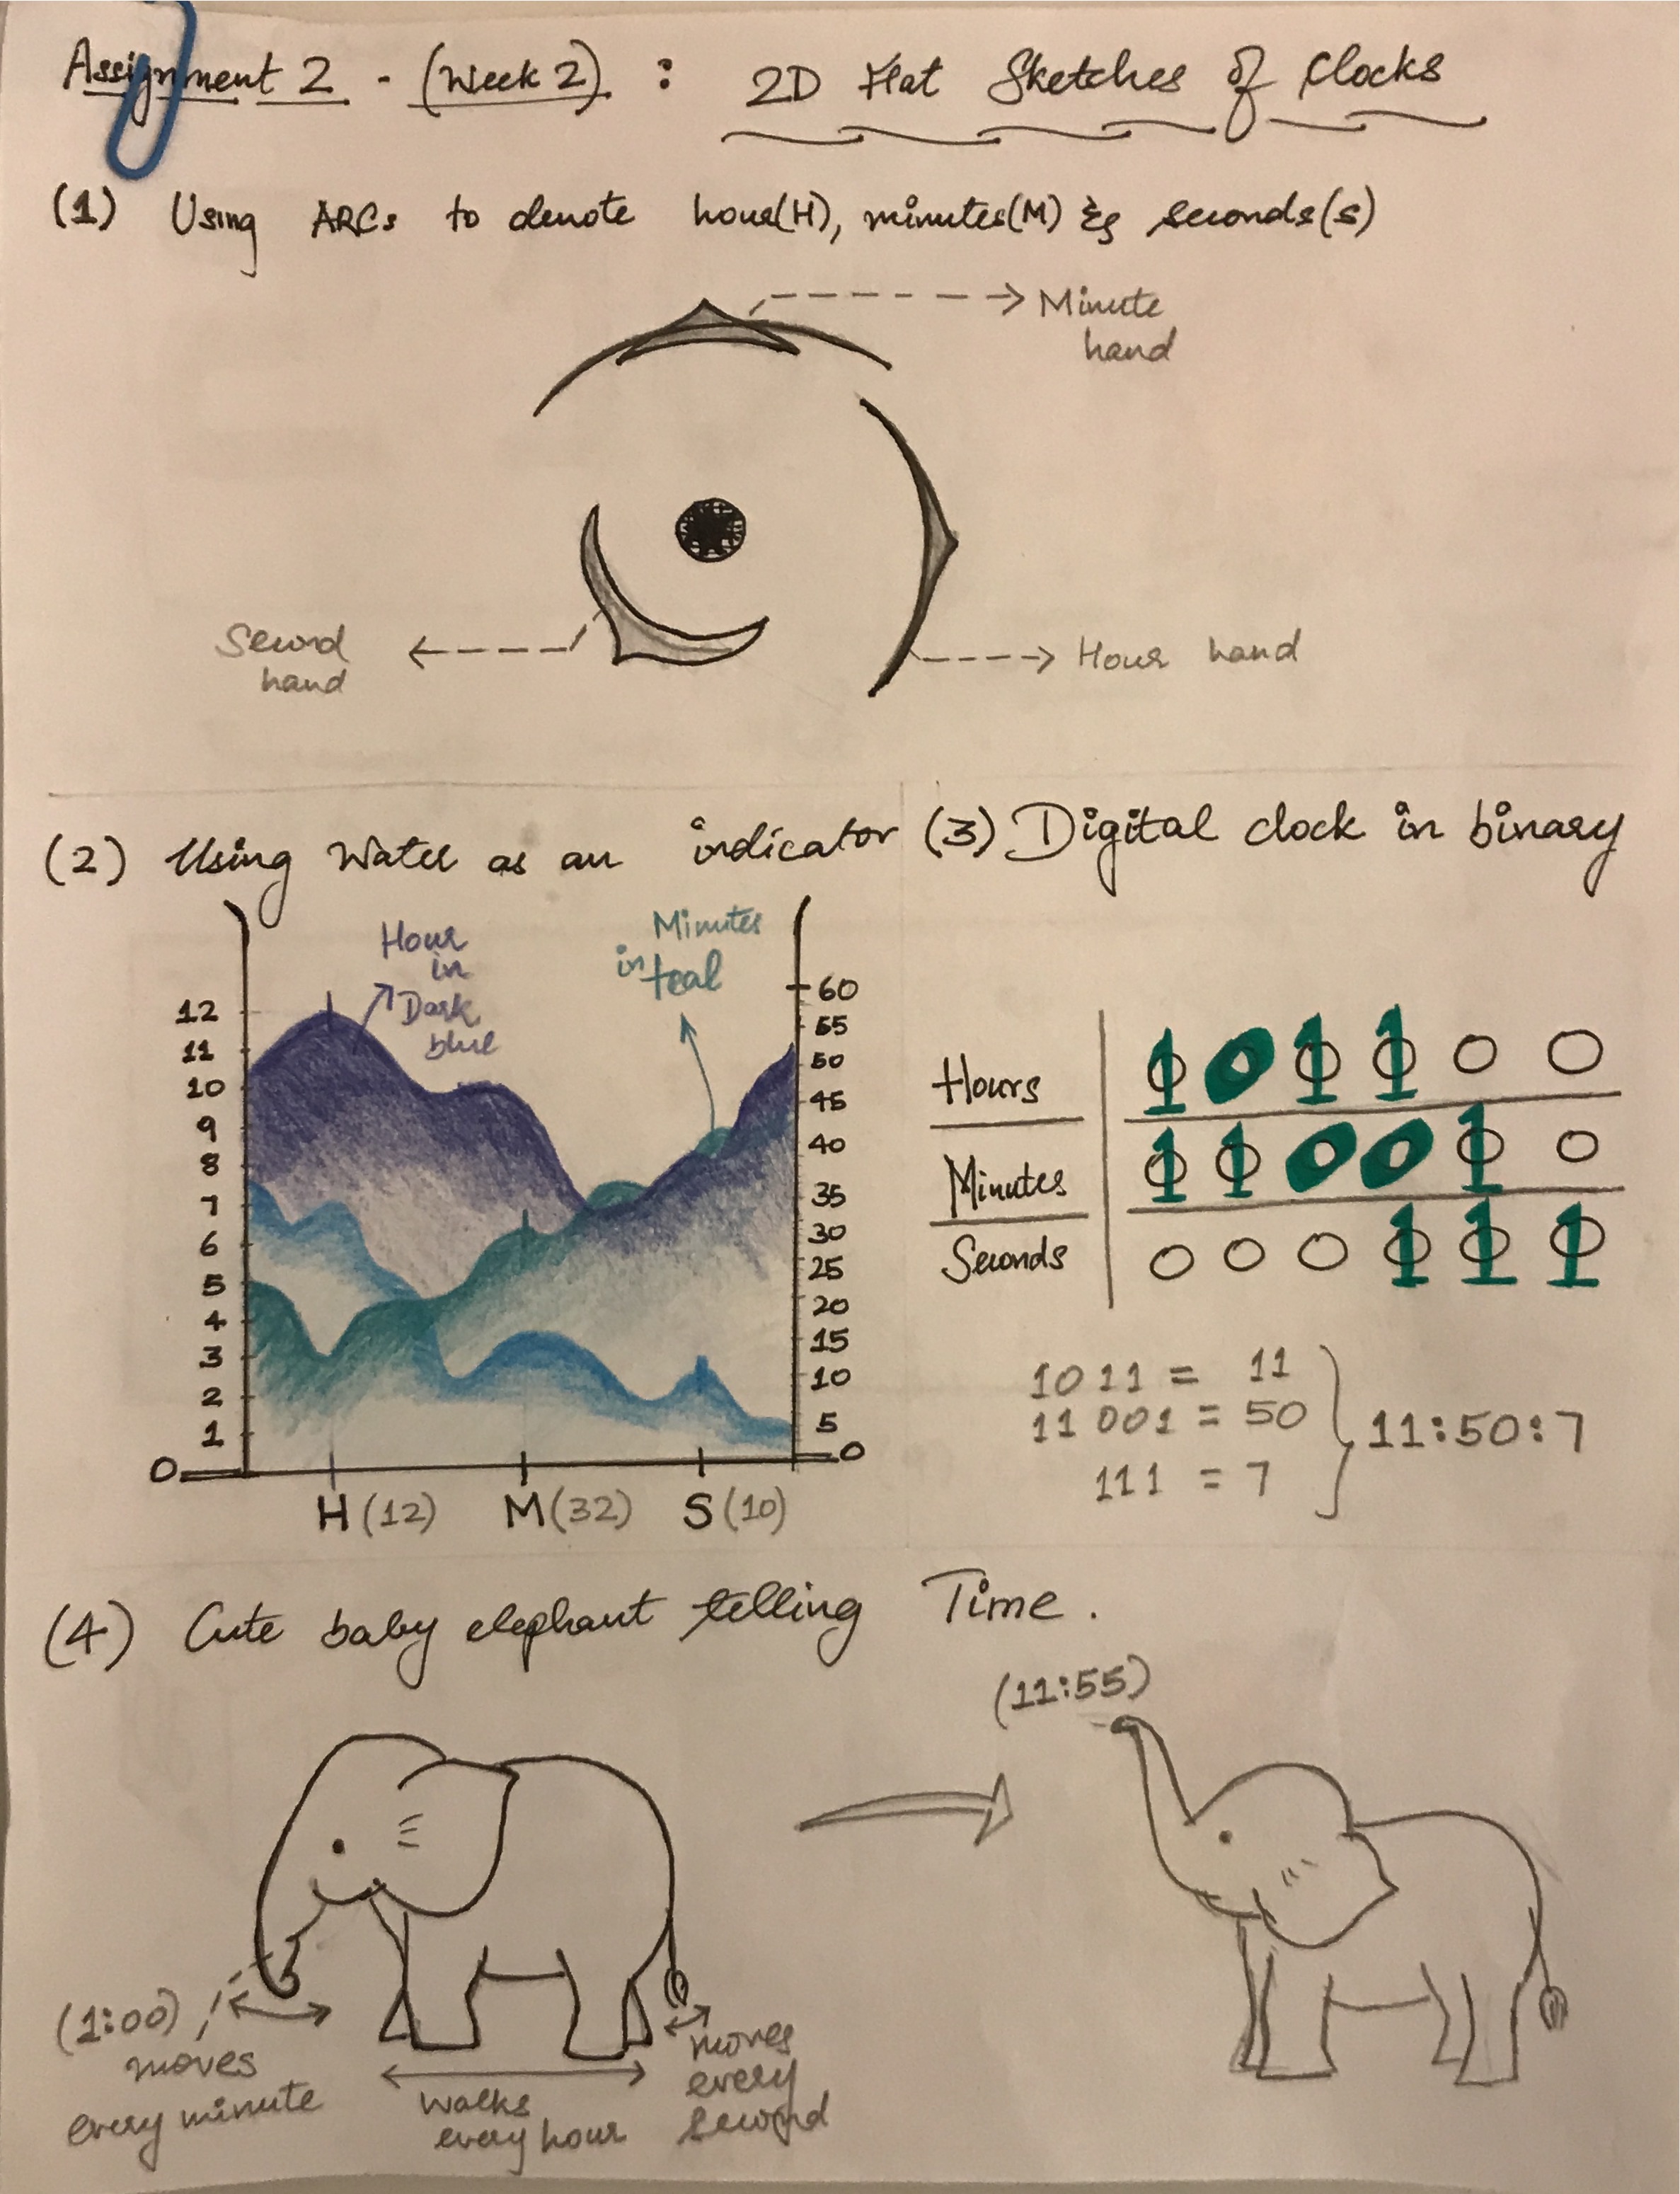 Assignment 2 - (Week 2) : 2D Flat Sketches of Clocks
(1) Using ARCs to denote hour(H), minutes(M) & seconds(s)
Minute
hand
Second
hand
Hour hand
(2) Using Water as an indicator
Hour
in
Dark
blue
Minutes
in teal
12
11
10
9
8
7
6
5
4
3
2
1
0
60
55
50
45
40
35
30
25
20
15
10
5
0
H (12) M (32) S (10)
(3) Digital clock in binary
Hours 1 0 1 1 0 0
Minutes 1 1 0 0 1 0
Seconds 0 0 0 1 1 1
1011 = 11
11001 = 50
111 = 7
11:50:7
(4) Cute baby elephant telling Time.
(1:00)
moves
every minute
walks
every hour
moves
every
second
(11:55)